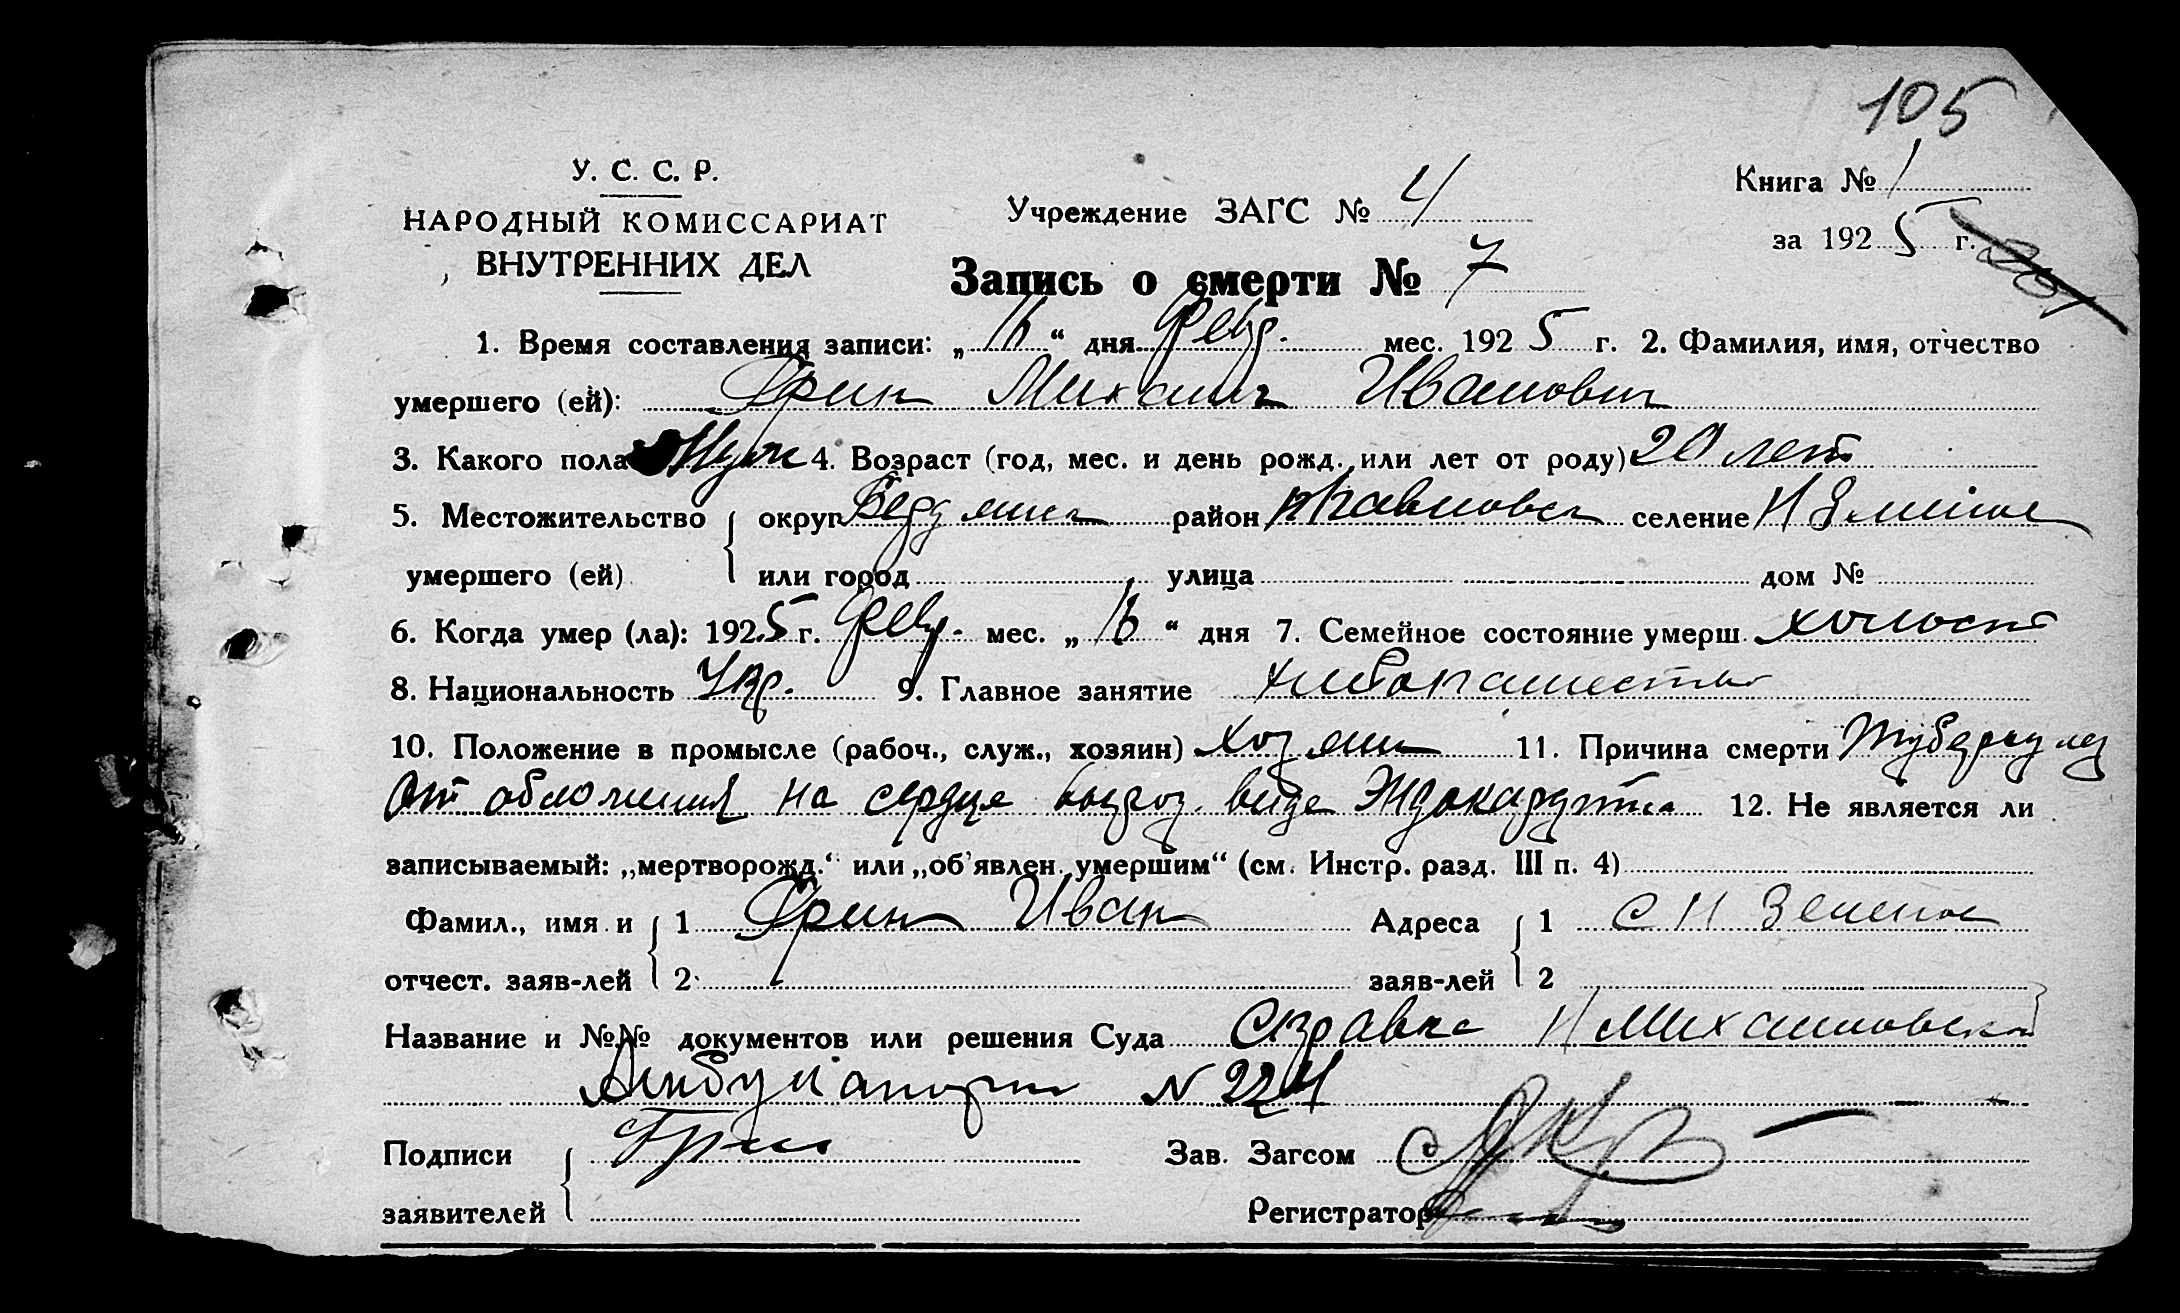 105
У. С. С. Р.
НАРОДНЫЙ КОМИССАРИАТ
ВНУТРЕННИХ ДЕЛ
Учреждение ЗАГС № 4
Книга № 1
за 1925 г.
Запись о смерти № 7
1. Время составления записи: „16“ дня февр. мес. 1925 г. 2. Фамилия, имя, отчество
умершего (ей): Фрин Михаил Иванович
3. Какого пола Муж 4. Возраст (год, мес. и день рожд. или лет от роду) 20 лет
5. Местожительство округ Бердянск район селение Н Зеленое
умершего (ей) или город улица дом №
6. Когда умер (ла): 1925 г. февр. мес. „16“ дня 7. Семейное состояние умерш. холост
8. Национальность Укр. 9. Главное занятие хлебопашество
10. Положение в промысле (рабоч., служ., хозяин) хозяин 11. Причина смерти Туберкулез
От обложения на сердце виде Эндокардита 12. Не является ли
записываемый: „мертворожд.“ или „об'явлен. умершим“ (см. Инстр. разд. III п. 4)
Фамил., имя и 1 Фрин Иван Адреса 1 с Н Зеленое
отчест. заяв-лей 2 заяв-лей 2
Название и №№ документов или решения Суда Справка Н Михайловской
Амбулатории N 224
Подписи Зав. Загсом
заявителей Регистратор